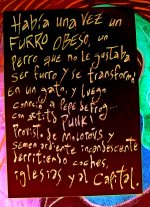 Había una vez un
FURRO OBESO, un
perro que no le gustaba
ser furro y se transformó
en un gato, y luego
conoció a Pepe de frog...
con actitís PUNK!
Provisto de MOLOTOVS y
semen ardiente incandescente
derritiendo coches,
iglesias y al Capital.